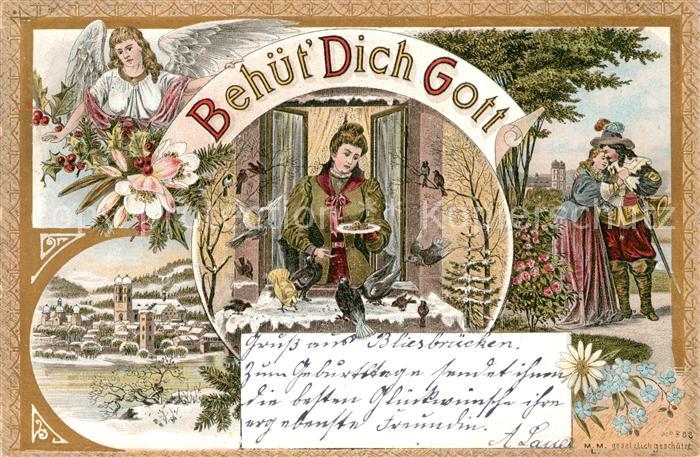 Behüt' Dich Gott
Gruß aus Bliesbrücken.
Zum Geburtstage sendet ihnen
die besten Glückwünsche ihre
ergebenste Freundin.
A. Lauer
No 588
M. M. gesetzlich geschützt